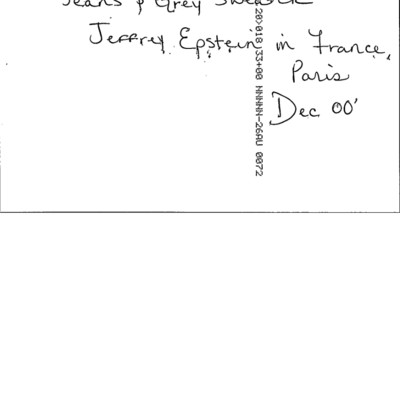 Jeans & Grey Sweater
Jeffrey Epstein in France,
Paris
Dec 00'
20>018 33+00 NNNNN-26AU 0072